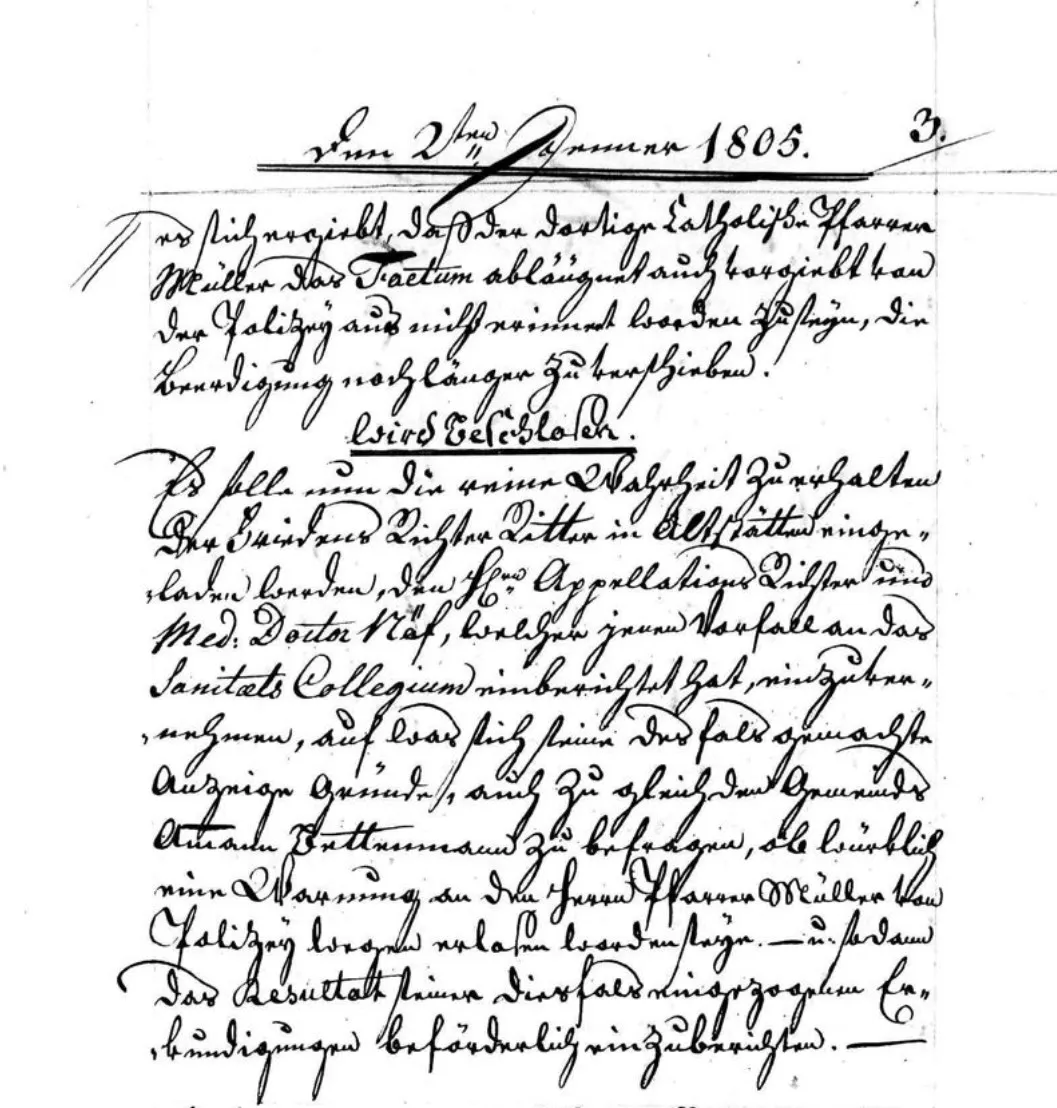 Den 2ten Jenner 1805. 3.
es sich ergiebt, daß der dortige Catholische Pfarrer
Müller das Factum abläugnet auch vorgiebt von
der Polizey aus nicht erinnert worden zu seyn, die
Beerdigung noch länger zu verschieben.
wird beschlosen.
Es solle um die reine Wahrheit zu erhalten
der Friedens Richter Ritter in Altstätten einge-
laden werden, den Hrn Appellations Richter und
Med: Doctor Näf, welcher jenen Vorfall an das
Sanitæts Collegium einberichtet hat, einzuver-
nehmen, auf was sich seine desfals gemachte
Anzeige gründe, auch zu gleich den Gemeinds
Amann Bettenmann zu befragen, ob würklich
eine Warnung an den Herrn Pfarrer Müller von
Polizey wegen erlasen worden seye. — u: sodann
das Resultat seiner diesfals eingezogenen Er-
kundigungen beförderlich einzuberichten. —